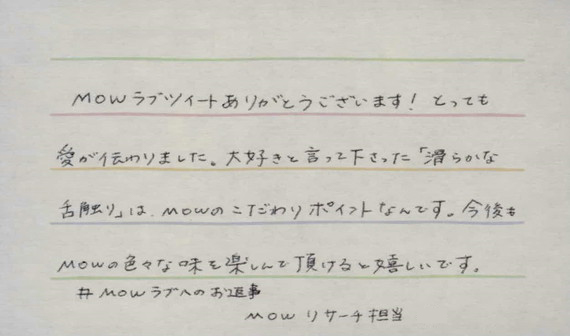 MOWラブツイートありがとうございます! とっても
愛が伝わりました。大好きと言って下さった「滑らかな
舌触り」は、MOWのこだわりポイントなんです。今後も
MOWの色々な味を楽しんで頂けると嬉しいです。
#MOWラブへのお返事
MOWリサーチ担当